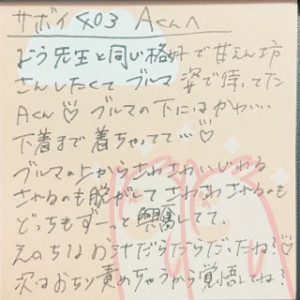 サボイ403 Aくんへ
どう先生と同じ格好で甘えん坊
さんしたくてブルマ姿で待ってた
Aくん♡ ブルマの下にはかわ…
下着まで着ちゃってて…♡
ブルマの上からさわさわいじわる
されるのも脱がしてさわさわされるのも
どっちもずーっと興奮してて、
えっちなお汁だらだらだったね♡
次はおちり責めちゃうから覚悟してね!